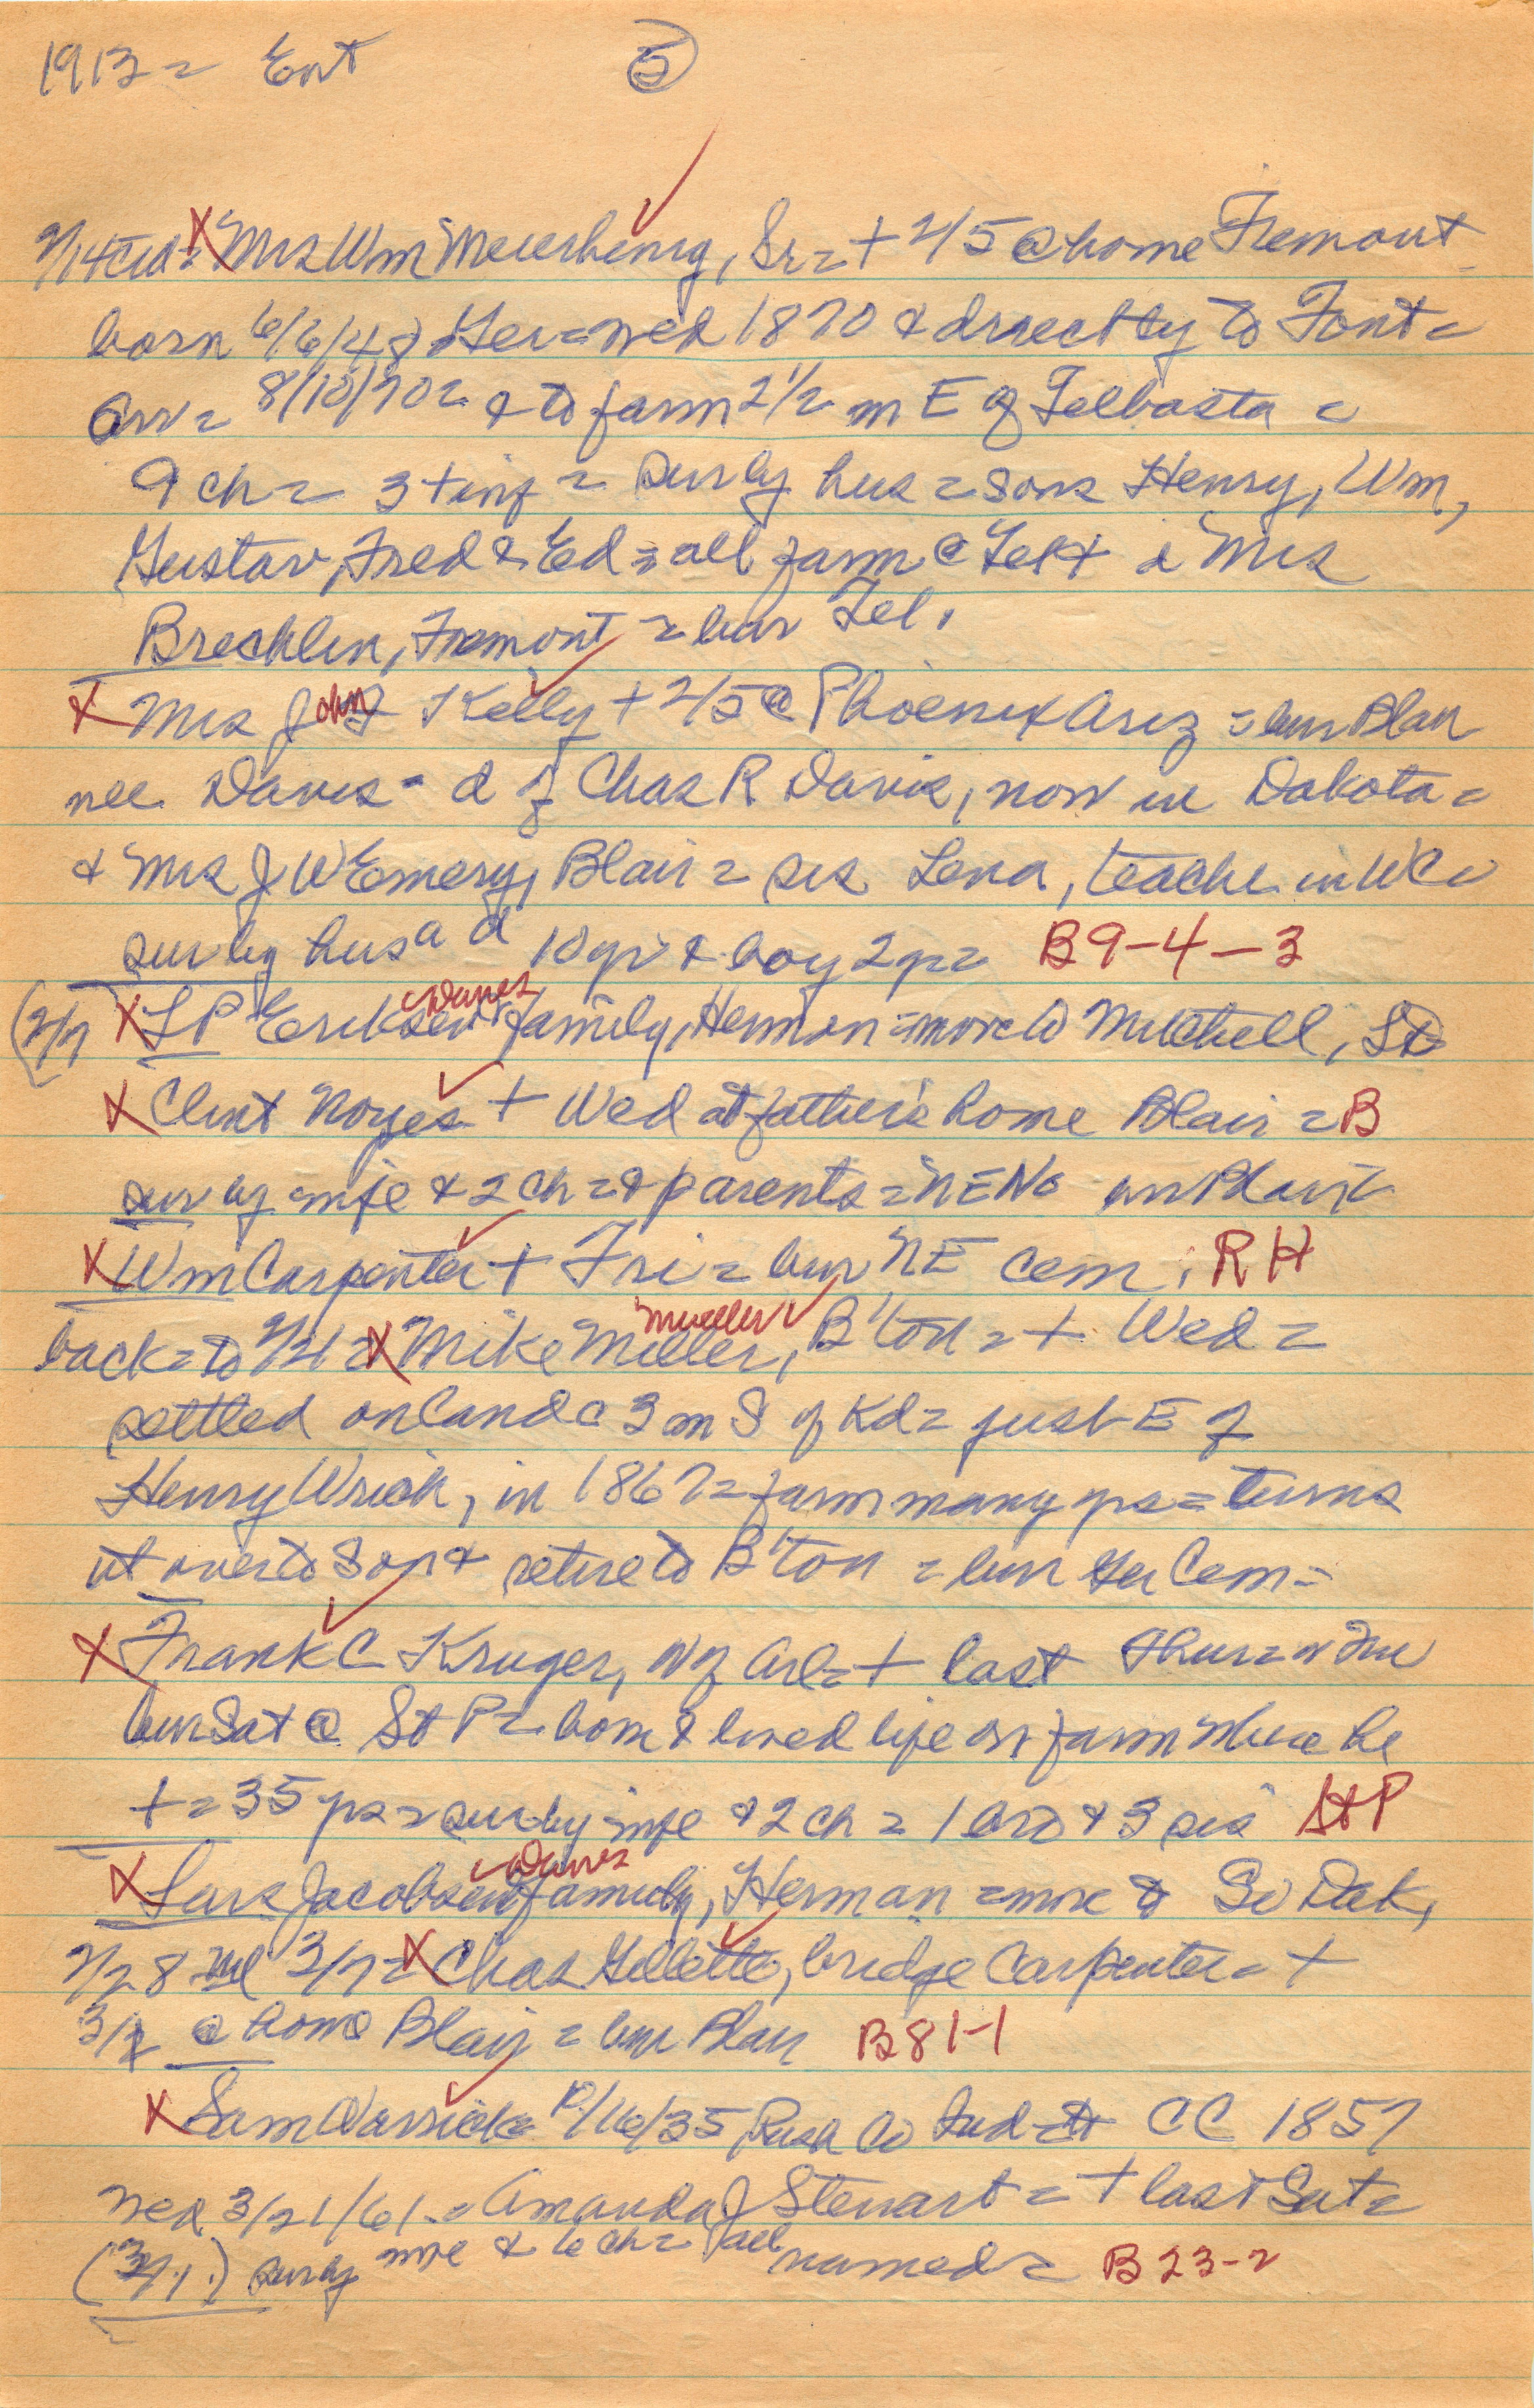 1913 = Ent 5
2/14 X Mrs Wm Meierhenry, Sr = + 2/5 @ home Fremont
born 6/6/48 Ger = wed 1870 & directly to Font =
arr = 8/10/70 = & to farm 2 1/2 m E of Telbasta =
9 ch = 3 + inf = sur by hus = sons Henry, Wm,
Gustav, Fred & Ed = all farm @ Tel + & Mrs
Brechlin, Fremont = bur Tel.
X Mrs John Kelly + 2/5 @ Phoenix Ariz = bur Blair
nee Davis = d of Chas R Davis, now in Dakota =
& Mrs J W Emery, Blair = sis Lena, teacher in WC =
sur by hus a d 10 yr & boy 2 yr = B 9-4-3
(2/7 X L P Eriksen Danes & family, Herman = move to Mitchell, SD
X Clint Noyes + Wed at father's home Blair = B
sur by wife & 2 ch = & parents = N E No Blair
X Wm Carpenter + Fri = bur NE cem. RH
back = to 2/21 = X Mike Miller Mueller, B'ton = + Wed =
settled on land @ 3 m S of Kd = just E of
Henry Wrich, in 1867 = farm many yrs = turns
it over to son & retire to B'ton = bur Ger Cem =
X Frank C Kruger, W of Arl = + last Thur =
bur Sat @ St P = born & lived life on farm where he
+ = 35 yrs = sur by wife & 2 ch = 1 bro & 3 sis St P
X Lars Jacobsen Danes & family, Herman = move to So Dak,
2/28 3/7 = X Chas Gillette, bridge carpenter = +
3/ @ home Blair = bur Blair B 81-1
X Sam Warrick = /16/35 Rush Co Ind = to CC 1857
wed 3/21/61 = Amanda J Stewart = + last Sat =
(3/1.) sur by wife & 6 ch = all named = B 23-2